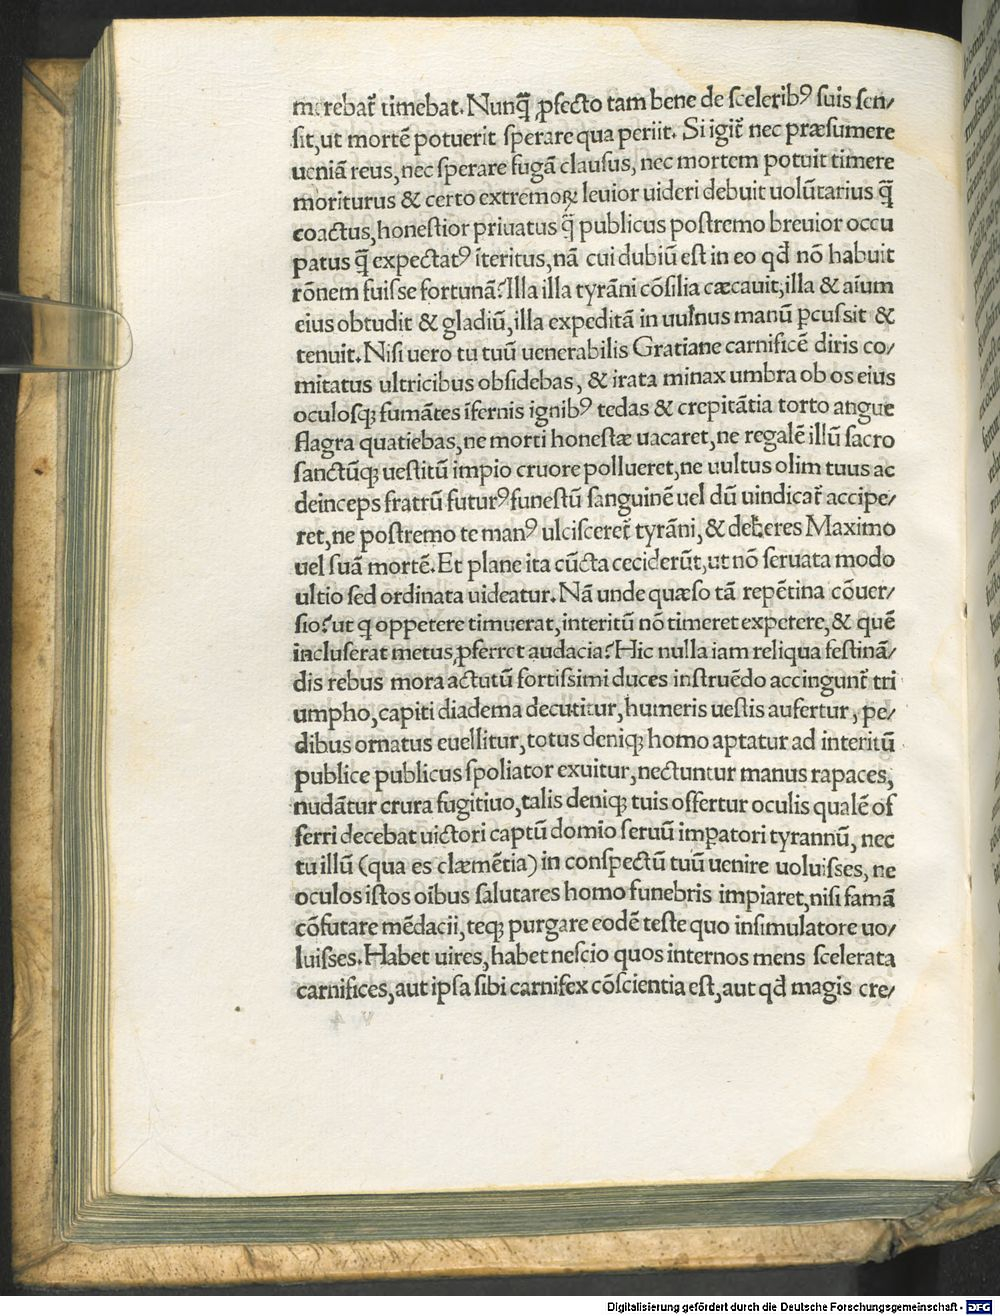 merebat᷑ timebat. Nunq̃ ꝓfecto tam bene de sceleribꝰ suis sen⸗
sit, ut mortẽ potuerit sperare qua periit. Si igit᷑ nec præsumere
ueniã reus, nec sperare fugã clausus, nec mortem potuit timere
moriturus & certo extremoꝝ leuior uideri debuit uolũtarius q̃
coactus, honestior priuatus q̃ publicus postremo breuior occu
patus q̃ expectatꝰ ĩteritus, nã cui dubiũ est in eo qđ nõ habuit
rõnem fuisse fortunã? Illa illa tyrãni cõsilia cæcauit, illa & aĩum
eius obtudit & gladiũ, illa expeditã in uulnus manũ ꝑcussit &
tenuit. Nisi uero tu tuũ uenerabilis Gratiane carnificẽ diris co⸗
mitatus ultricibus obsidebas, & irata minax umbra ob os eius
oculosqꝫ fumãtes ĩfernis ignibꝰ tedas & crepitãtia torto angue
flagra quatiebas, ne morti honestæ uacaret, ne regalẽ illũ sacro
sanctũqꝫ uestitũ impio cruore pollueret, ne uultus olim tuus ac
deinceps fratrũ futurꝰ funestũ sanguinẽ uel dũ uindicat᷑ accipe⸗
ret, ne postremo te manꝰ ulcisceret᷑ tyrãni, & deberes Maximo
uel suã mortẽ. Et plane ita cũcta ceciderũt, ut nõ seruata modo
ultio sed ordinata uideatur. Nã unde quæso tã repẽtina cõuer⸗
sio? ut q oppetere timuerat, interitũ nõ timeret expetere, & quẽ
incluserat metus, ꝓferret audacia? Hic nulla iam reliqua festinã⸗
dis rebus mora actutũ fortissimi duces instruẽdo accingunt᷑ tri
umpho, capiti diadema decutitur, humeris uestis aufertur, pe⸗
dibus ornatus euellitur, totus deniqꝫ homo aptatur ad interitũ
publice publicus spoliator exuitur, nectuntur manus rapaces,
nudãtur crura fugitiuo, talis deniqꝫ tuis offertur oculis qualẽ of
ferri decebat uictori captũ domio seruũ imꝑatori tyrannũ, nec
tu illũ (qua es clæmẽtia) in conspectũ tuũ uenire uoluisses, ne
oculos istos oĩbus salutares homo funebris impiaret, nisi famã
cõfutare mẽdacii, teqꝫ purgare eodẽ teste quo insimulatore uo⸗
luisses. Habet uires, habet nescio quos internos mens scelerata
carnifices, aut ipsa sibi carnifex cõscientia est, aut qđ magis cre⸗
Digitalisierung gefördert durch die Deutsche Forschungsgemeinschaft - DFG